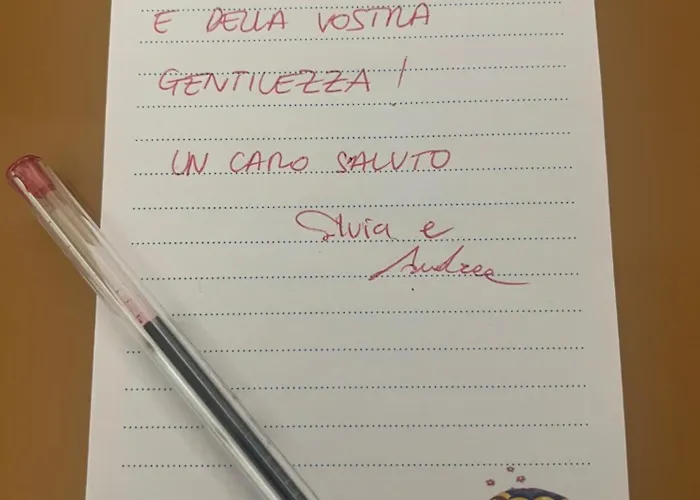 E DELLA VOSTRA
GENTILEZZA !
UN CARO SALUTO
Silvia e
Andrea